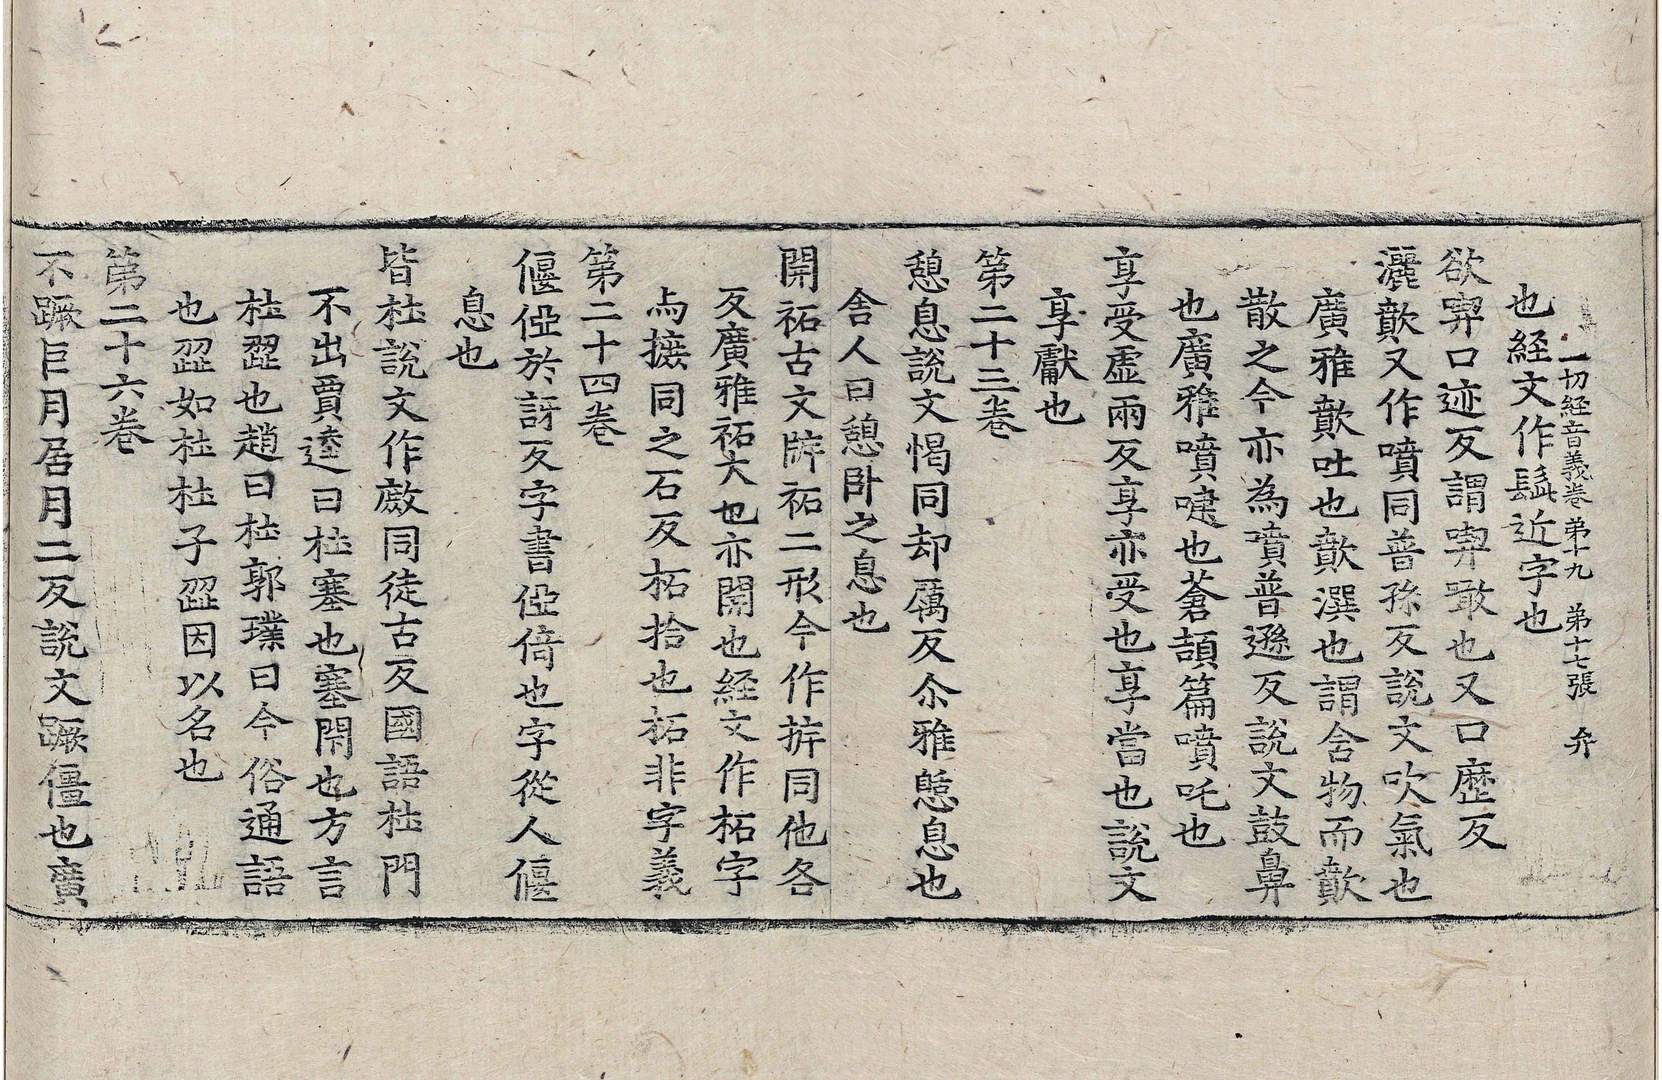 一切経音義巻第十九 第十七張 弁
也経文作髭近字也
欲喫口迹反謂喫噉也又口歷反
灑歕又作噴同普孫反說文吹氣也
廣雅歕吐也歕潠也謂含物而歕
散之今亦為噴普遜反說文鼓鼻
也廣雅噴嚏也蒼頡篇噴吒也
享受虛兩反享亦受也享當也說文
享獻也
第二十三巻
憩息說文愒同却厲反尒雅憩息也
舍人曰憩卧之息也
開祏古文㡿祏二形今作㡿同他各
反廣雅祏大也亦開也経文作柘字
与摭同之石反柘拾也柘非字義
第二十四巻
偃俹於訝反字書俹倚也字從人偃
息也
皆杜說文作敱同徒古反國語杜門
不出賈逵曰杜塞也塞閇也方言
杜澀也趙曰杜郭璞曰今俗通語
也澀如杜杜子澀因以名也
第二十六巻
不蹶巨月居月二反說文蹶僵也廣